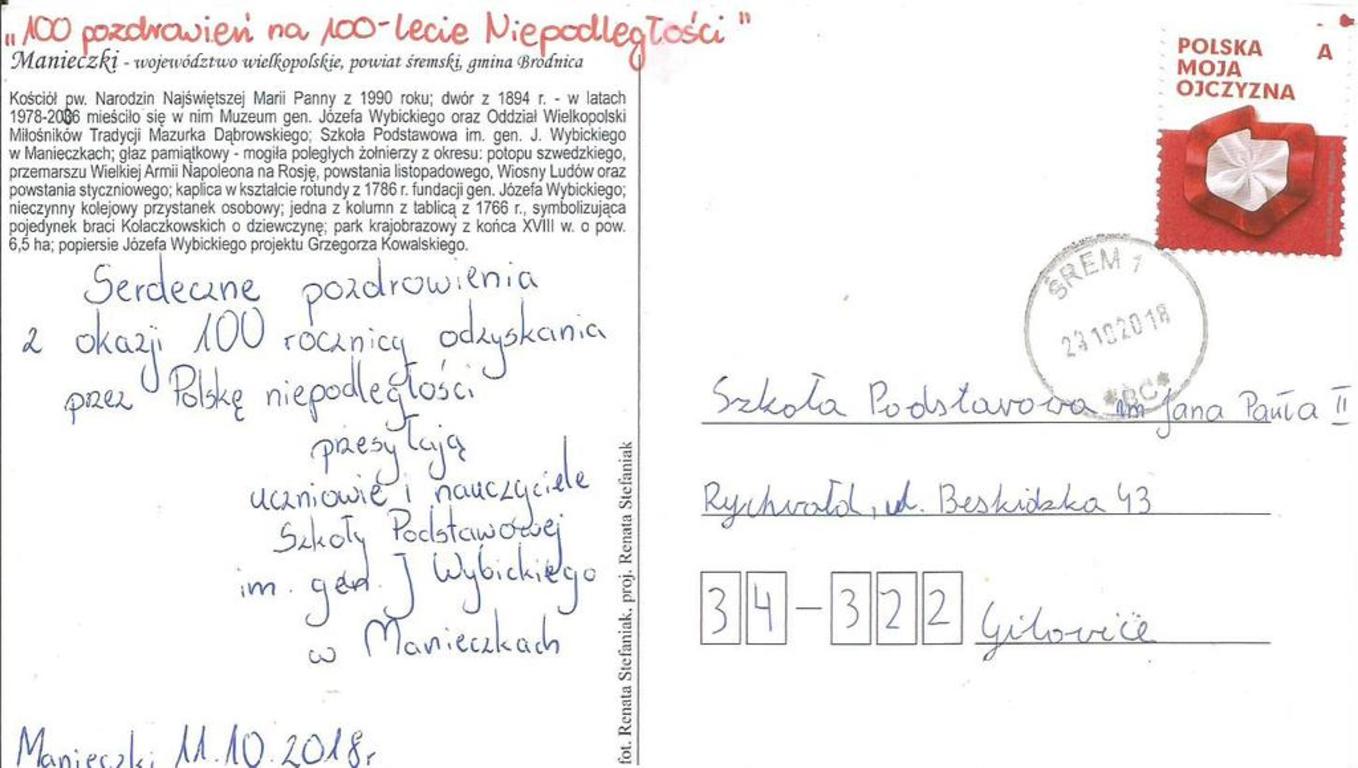 „100 pozdrowień na 100-lecie Niepodległości"
Manieczki - województwo wielkopolskie, powiat śremski, gmina Brodnica
Kościół pw. Narodzin Najświętszej Marii Panny z 1990 roku; dwór z 1894 r. - w latach
1978-2006 mieściło się w nim Muzeum gen. Józefa Wybickiego oraz Oddział Wielkopolski
Miłośników Tradycji Mazurka Dąbrowskiego; Szkoła Podstawowa im. gen. J. Wybickiego
w Manieczkach; głaz pamiątkowy - mogiła poległych żołnierzy z okresu: potopu szwedzkiego,
przemarszu Wielkiej Armii Napoleona na Rosję, powstania listopadowego, Wiosny Ludów oraz
powstania styczniowego; kaplica w kształcie rotundy z 1786 r. fundacji gen. Józefa Wybickiego;
nieczynny kolejowy przystanek osobowy; jedna z kolumn z tablicą z 1766 r., symbolizująca
pojedynek braci Kołaczkowskich o dziewczynę; park krajobrazowy z końca XVIII w. o pow.
6,5 ha; popiersie Józefa Wybickiego projektu Grzegorza Kowalskiego.
Serdeczne pozdrowienia
z okazji 100 rocznicy odzyskania
przez Polskę niepodległości
przesyłają
uczniowie i nauczyciele
Szkoły Podstawowej
im. gen. J Wybickiego
w Manieczkach
Manieczki 11.10.2018r
fot. Renata Stefaniak, proj. Renata Stefaniak
POLSKA
MOJA
OJCZYZNA
A
ŚREM 1
23102018
*BC*
Szkoła Podstawowa im Jana Pawła II
Rychwałd, ul. Beskidzka 43
34-322 Gilowice